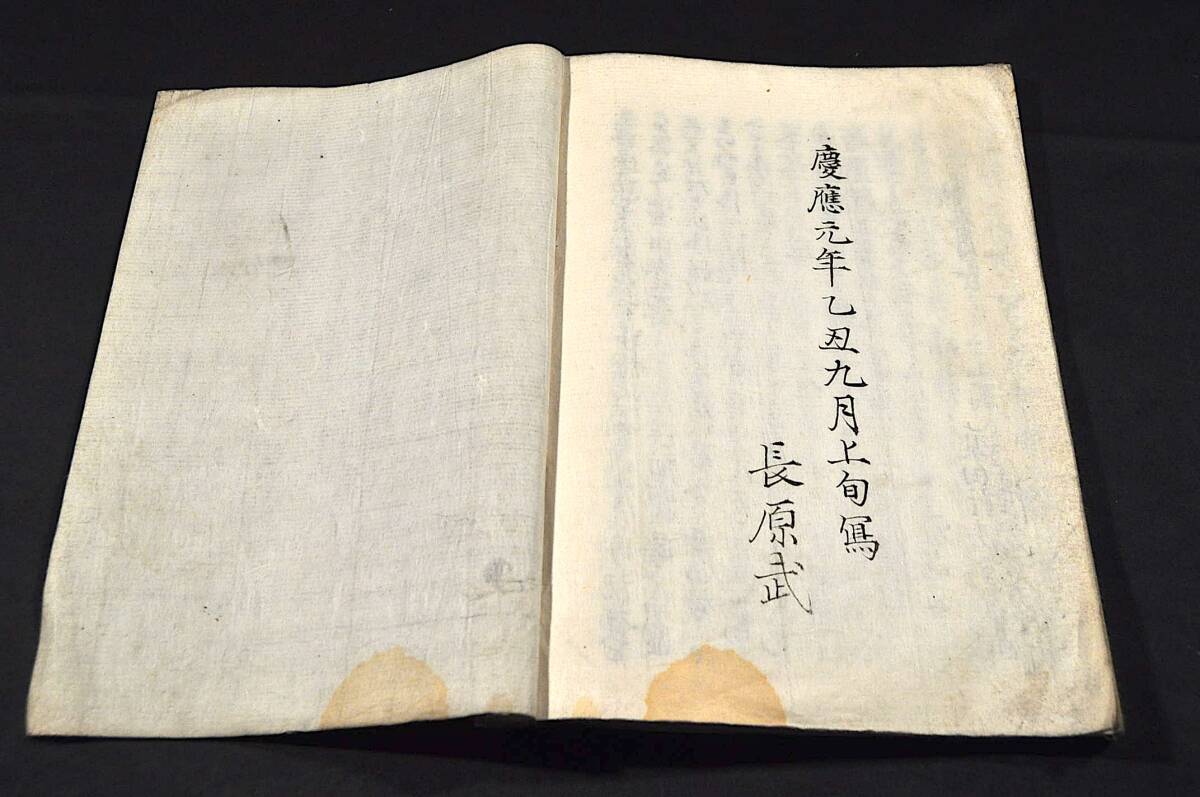 慶應元年乙丑九月上旬寫
長原武